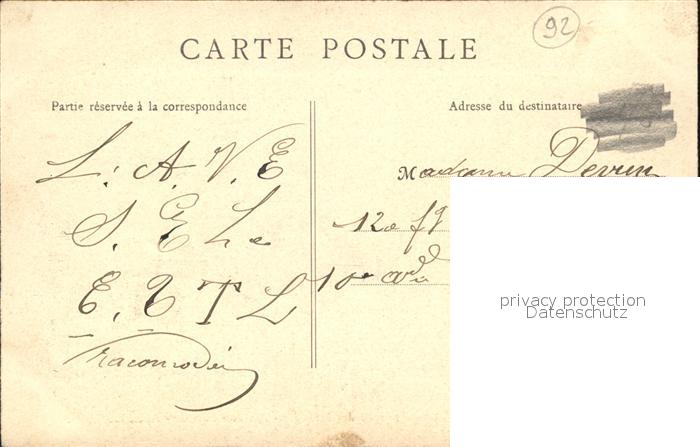 92
CARTE POSTALE
Partie réservée à la correspondance
Adresse du destinataire
L. A. V. E
S. E L
E. T L
Madame Devun
120 fg
10e
privacy protection
Datenschutz